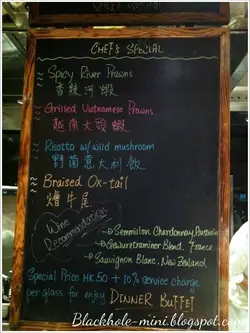 CHEF'S SPECIAL
Spicy River Prawns
香辣河蝦
Grilled Vietnamese Prawns
越南大頭蝦
Risotto w/ wild mushroom
野菌意大利飯
Braised Ox-tail
燴牛尾
Wine
Recommendation
Semmilon Chardonnay, Australia
Gewurztraminer Blend, France
Sauvignon Blanc, New Zealand
Special Price HK 50 + 10% service charge
per glass for enjoy DINNER BUFFET
Blackhole-mini.blogspot.com